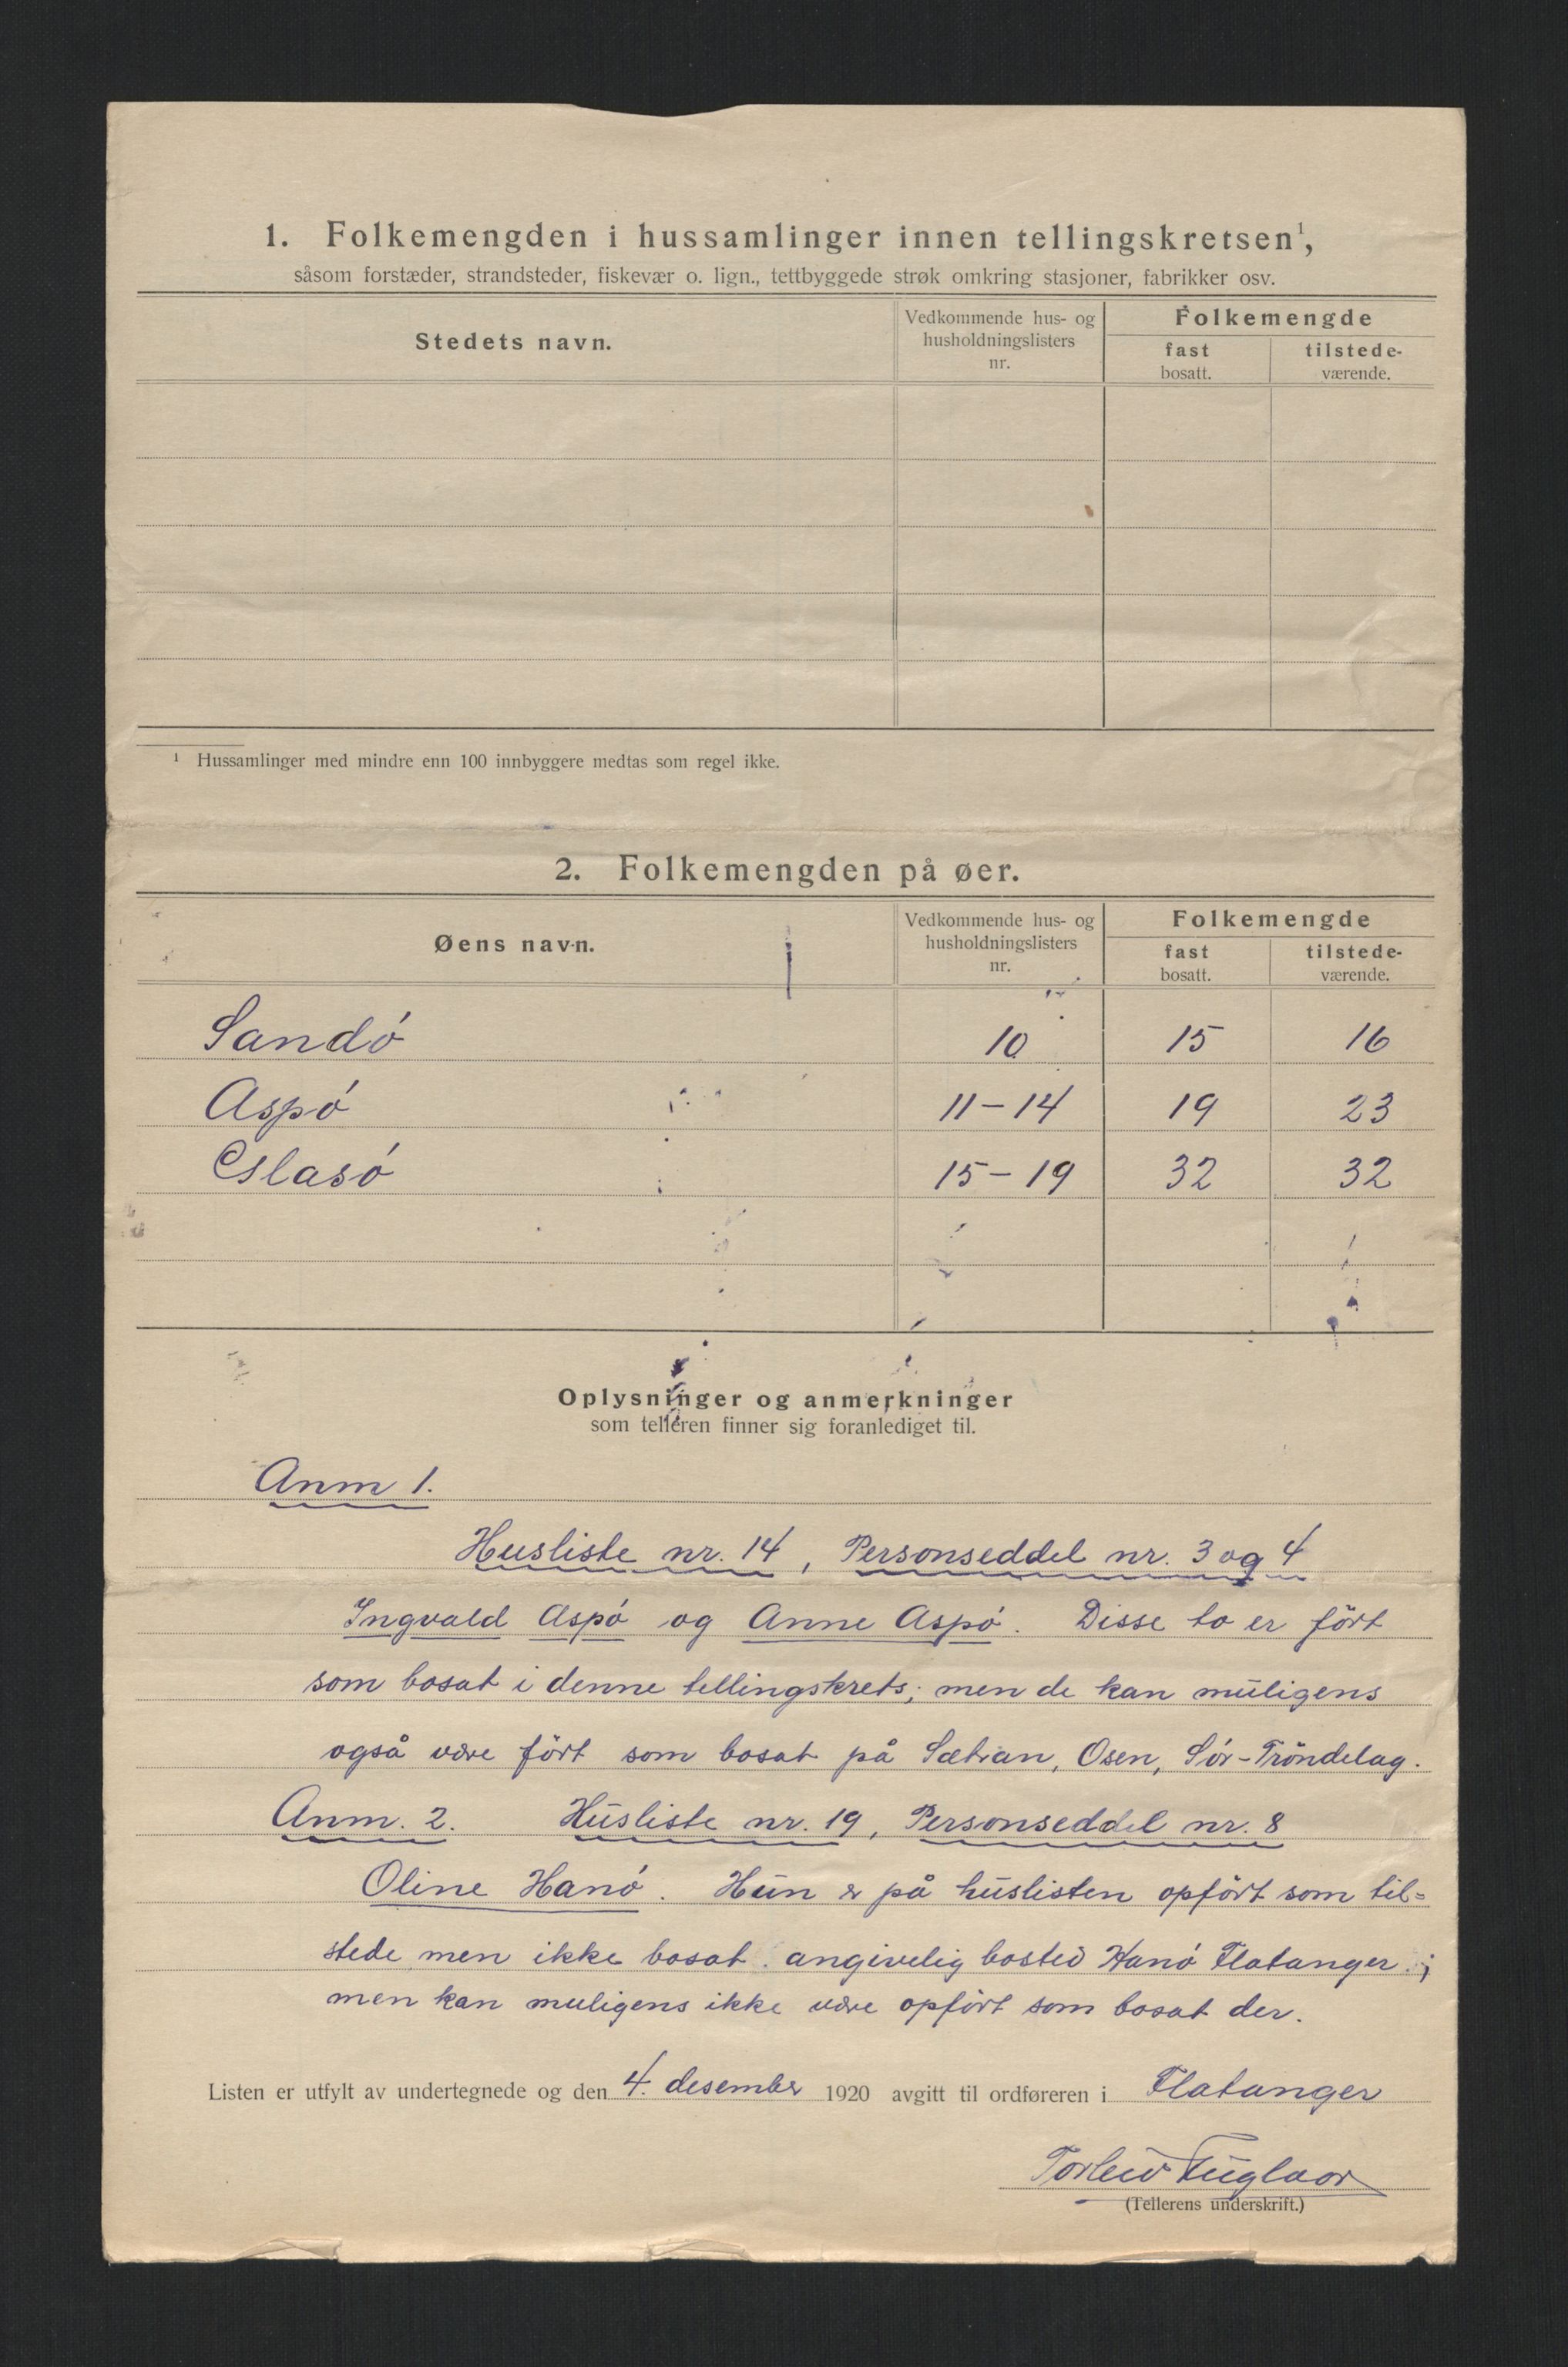 1. Folkemengden i hussamlinger innen tellingskretsen¹,
såsom forstæder, strandsteder, fiskevær o. lign., tettbyggede strøk omkring stasjoner, fabrikker osv.
Stedets navn. Vedkommende hus- og husholdningslisters nr. Folkemengde
fast bosatt. tilstede-værende.
¹ Hussamlinger med mindre enn 100 innbyggere medtas som regel ikke.
2. Folkemengden på øer.
Øens navn. Vedkommende hus- og husholdningslisters nr. Folkemengde
fast bosatt. tilstede-værende.
Sandó 10 15 16
Aspó 11-14 19 23
15-19 32 32
Oplysninger og anmerkninger
som telleren finner sig foranlediget til.
Anm 1.
Husliste nr. 14, Personseddel nr. 3 og 4
Ingvald Aspó og Anne Aspó. Disse to er fört
som bosat i denne tellingskrets; men de kan muligens
også være fört som bosat på Sætran, Osen, Sór-Tröndelag.
Anm. 2. Husliste nr. 19, Personseddel nr. 8
Oline Hanó. Hun er på huslisten opfört som til=
stede men ikke bosat. angivelig bosted Hanó Flatanger;
men kan muligens ikke være opfört som bosat der.
Listen er utfylt av undertegnede og den 4. desember 1920 avgitt til ordføreren i Flatanger
(Tellerens underskrift.)